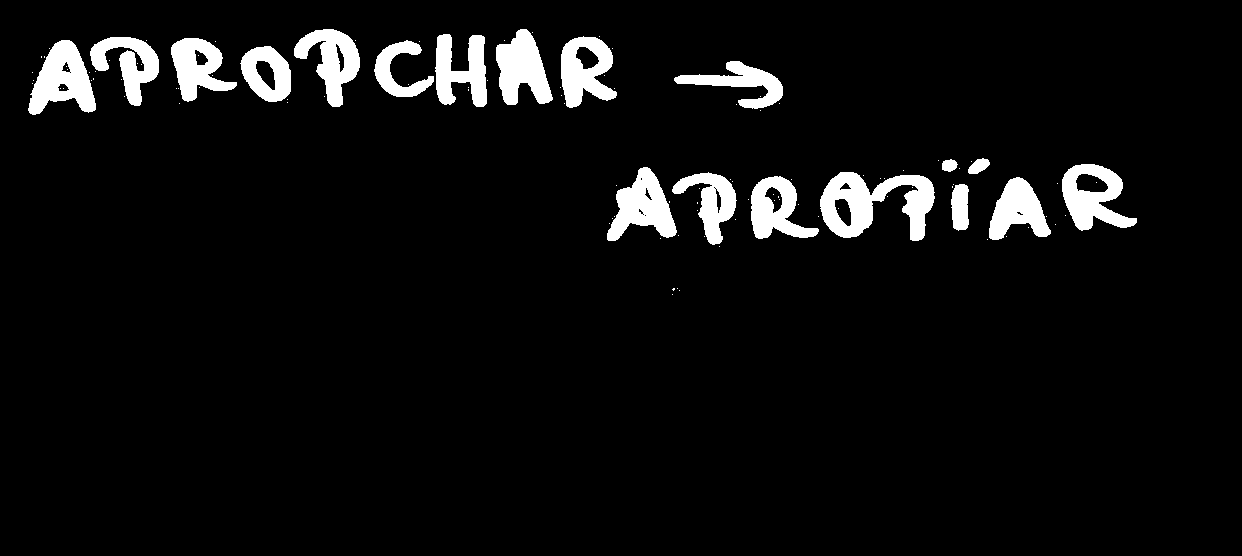 APROPCHAR →
APROPÏAR